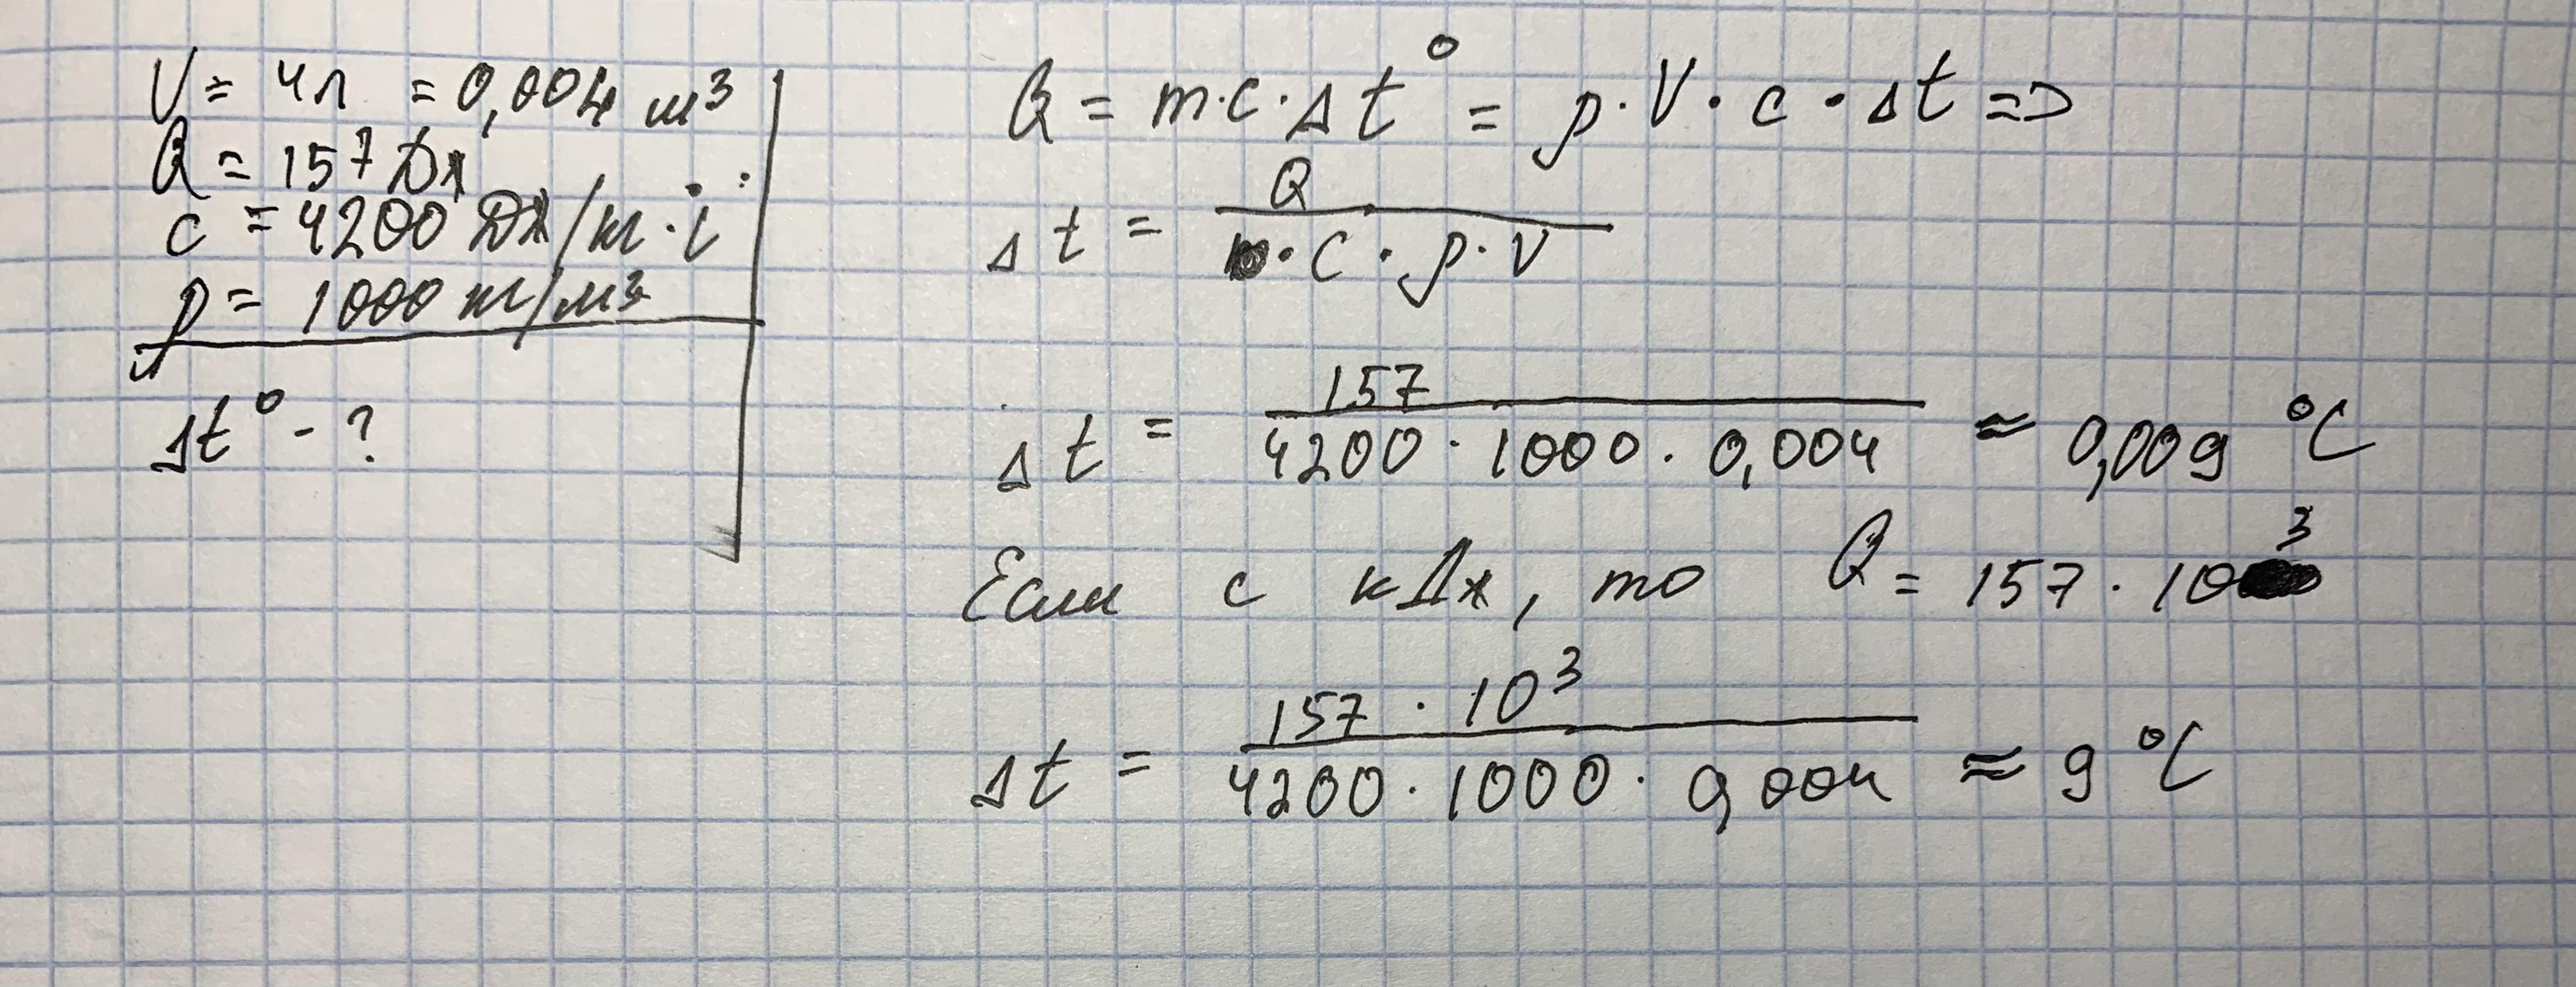 V = 4л = 0,004 м³
Q = 157 Дж
c = 4200 Дж/кг·°C
ρ = 1000 кг/м³
Δt° - ?
Q = m·c·Δt° = ρ·V·c·Δt =>
Δt = Q / c·ρ·V
Δt = 157 / 4200·1000·0,004 ≈ 0,009 °C
Если с кДж, то Q = 157·10³
Δt = 157·10³ / 4200·1000·0,004 ≈ 9 °C